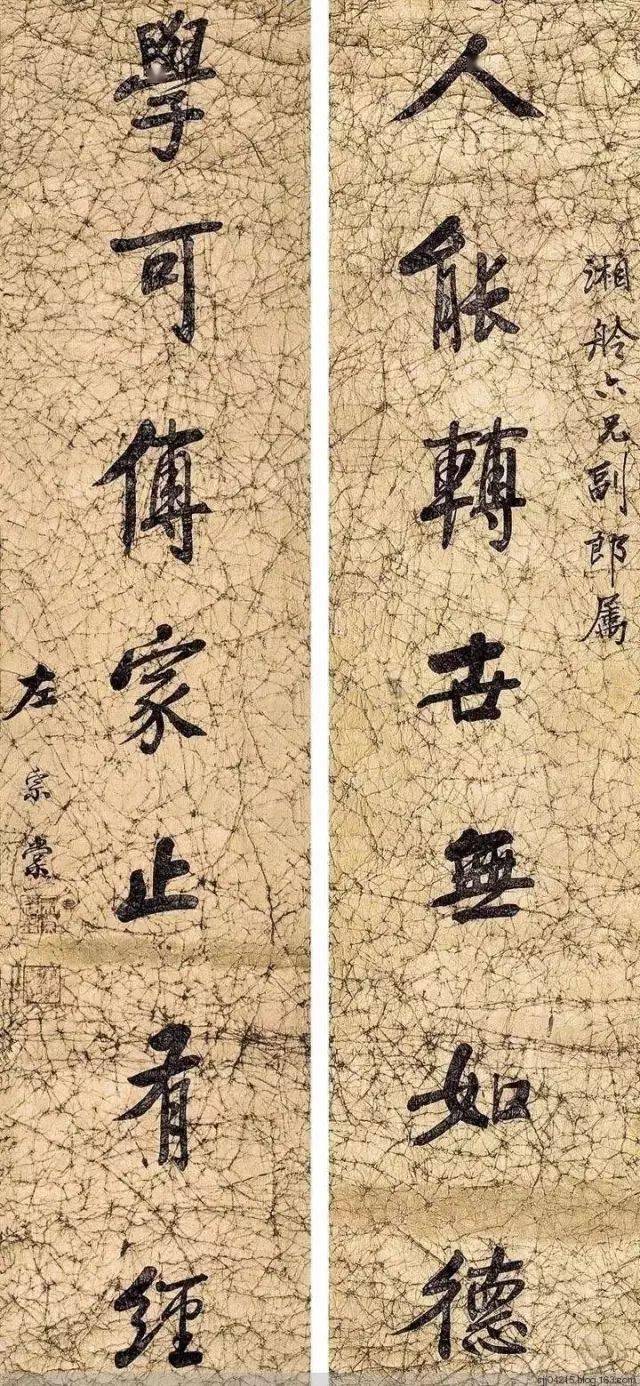 湘舲六兄副郎属
人能轉世無如德
學可傳家止有經
左宗棠
cjj04215.blog.163.com